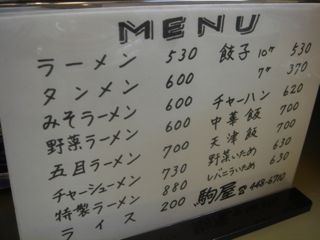 MENU
ラーメン 530
タンメン 600
みそラーメン 600
野菜ラーメン 600
五目ラーメン 700
チャーシューメン 730
特製ラーメン 880
ライス 200
餃子 10ケ 530
7ケ 370
チャーハン 620
中華飯 700
天津飯 700
野菜いため 630
レバニラいため 630
駒屋 ☎ 448-6710